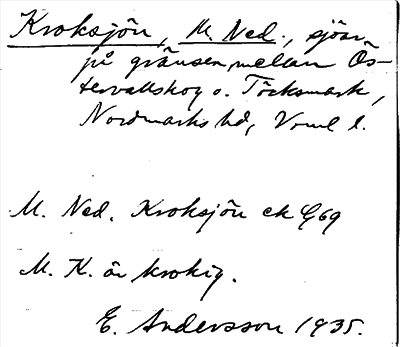 Kroksjön, M. Ned., sjöar
på gränsen mellan Ös-
tervallskog o. Töcksmark,
Nordmarks hd, Vrml l.
M. Ned. Kroksjön ek G69
M. K. är krokig.
E. Andersson 1935.